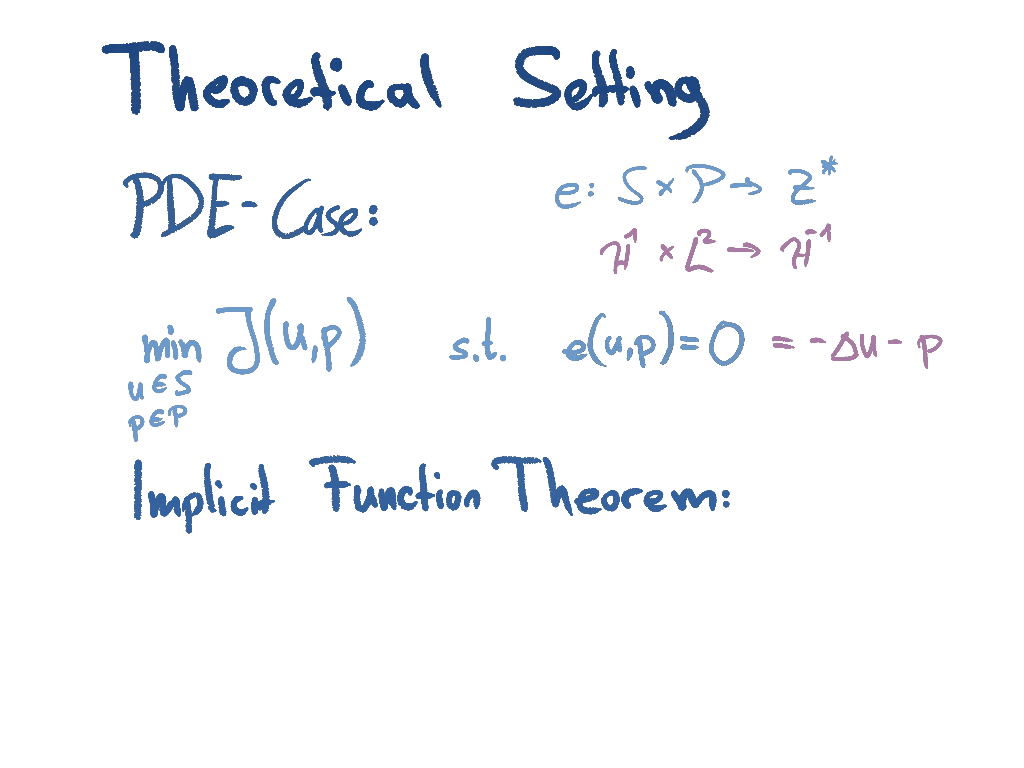 Theoretical Setting
PDE-Case: e: S × P → Z*
H¹ × L² → H⁻¹
min J(u,p) s.t. e(u,p) = 0 = -Δu - p
u∈S
p∈P
Implicit Function Theorem: